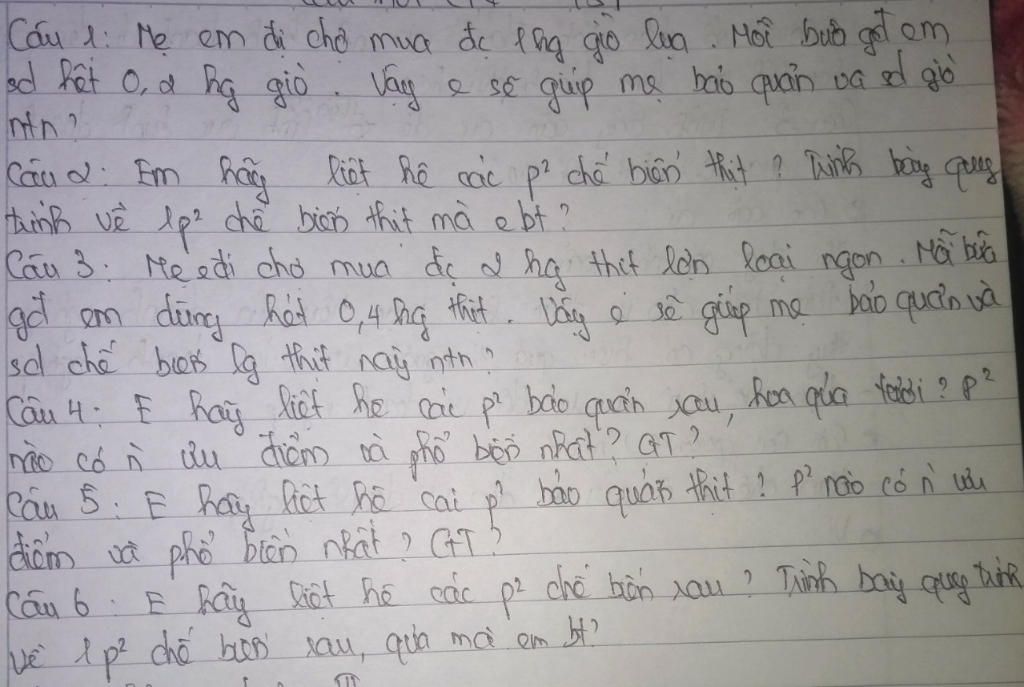 Câu 1: Mẹ em đi chợ mua đc 1kg giò lụa. Mỗi bữa gđ em
sd hết 0,2 kg giò. Vậy e sẽ giúp mẹ bảo quản và sd giò
ntn?
Câu 2: Em hãy liệt kê các p² chế biến thịt? Trình bày quy
trình về 1p² chế biến thịt mà e bt?
Câu 3: Mẹ e đi chợ mua đc 2 kg thịt lợn loại ngon. Mỗi bữa
gđ em dùng hết 0,4 kg thịt. Vậy e sẽ giúp mẹ bảo quản và
sd chế biến lg thịt này ntn?
Câu 4: E hãy liệt kê các p² bảo quản rau, hoa quả tươi? P²
nào có n ưu điểm và phổ biến nhất? GT?
Câu 5: E hãy liệt kê các p² bảo quản thịt? P² nào có n ưu
điểm và phổ biến nhất? GT?
Câu 6: E hãy liệt kê các p² chế biến rau? Trình bày quy trình
về 1 p² chế biến rau, quả mà em bt?